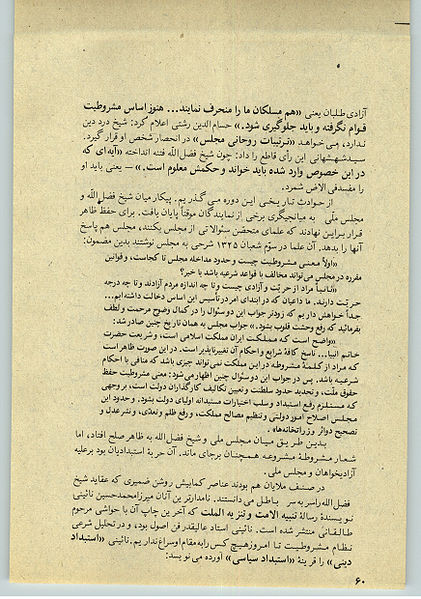 آزادی طلبان یعنی «هم مسلکان ما را منحرف نمایند... هنوز اساس مشروطیت
قوام نگرفته و باید جلوگیری شود.» حسام‌الدین رشتی اعلام کرد: شیخ درد دین
ندارد، می‌خواهد «ترتیبات روحانی مجلس» در انحصار شخص او قرار گیرد.
سیدشهشهانی این رأی قاطع را داد: چون شیخ فضل‌الله فتنه انداخته «آیه‌ای که
در این خصوص وارد شده باید خواند و حکمش معلوم است.» — یعنی باید او
را مفسدفی الارض شمرد.
از حوادث تاریخی این دوره می‌گذریم. پیکار میان شیخ فضل‌الله و
مجلس ملی به میانجیگری برخی از نمایندگان موقتاً پایان یافت. برای حفظ ظاهر
قرار براین نهادند که علمای متحصن سئوالاتی از مجلس بکنند، مجلس هم پاسخ
آنها را بدهد. آن علما در سوم شعبان ۱۳۲۵ شرحی به مجلس نوشتند بدین مضمون:
«اولاً معنی مشروطیت چیست و حدود مداخله مجلس تا کجاست، و قوانین
مقرره در مجلس می‌تواند مخالف با قواعد شرعیه باشد یا خیر؟
«ثانیاً مراد از حریّت و آزادی چیست و تا چه اندازه مردم آزادند و تا چه درجه
حریّت دارند. ما داعیان که در ابتدای امر در تأسیس این اساس دخالت داشته‌ایم...
جداً خواهش داریم که زودتر جواب این دو سئوال را در کمال وضوح مرحمت و لطف
بفرمائید که رفع وحشت قلوب بشود.» جواب مجلس به همان تاریخ چنین صادر شد:
«واضح است که مملکت ایران مملکت اسلامی است، و شریعت حضرت
خاتم انبیا... ناسخ کافهٔ شرایع و احکام آن تغییرناپذیر است. در این صورت ظاهر است
که مراد از کلمهٔ مشروطه در این مملکت نمی‌تواند چیزی باشد که منافی با احکام
شرعیه باشد. پس در جواب این دو سئوال چنین اظهار می‌شود: معنی مشروطیت حفظ
حقوق ملّت، و تحدید حدود سلطنت و تعیین تکالیف کارگذاران دولت است، بر وجهی
که مستلزم رفع استبداد و سلب اختیارات مستبدانه اولیای دولت بشود. و حدود این
مجلس اصلاح امور دولتی و تنظیم مصالح مملکت، و رفع ظلم و تعدّی، و نشر عدل و
تصحیح دوائر وزراتخانه‌هاه
بدین طریق میان مجلس ملی و شیخ فضل‌الله به ظاهر صلح افتاد، اما
شعار مشروطهٔ مشروعه همچنان برجای ماند. آن حربهٔ استبدادیان بود برعلیه
آزادیخواهان و مجلس ملی.
در صنف ملایان هم بودند عناصر کمابیش روشن ضمیری که عقاید شیخ
فضل‌الله را سر به سر باطل می‌دانستند. نامدارترین آنان میرزا محمدحسین نائینی
نویسندهٔ رسالهٔ تنبیه الامت و تنزیه الملت که آخرین چاپ آن با حواشی مرحوم
طالقانی منتشر شده است. نائینی استاد عالیقدر فن اصول بود، و در تحلیل شرعی
نظام مشروطیت تا امروز هیچ کس را به مقام او سراغ نداریم. نائینی «استبداد
دینی» را قرینهٔ «استبداد سیاسی» آورده می‌نویسد:
۶۰